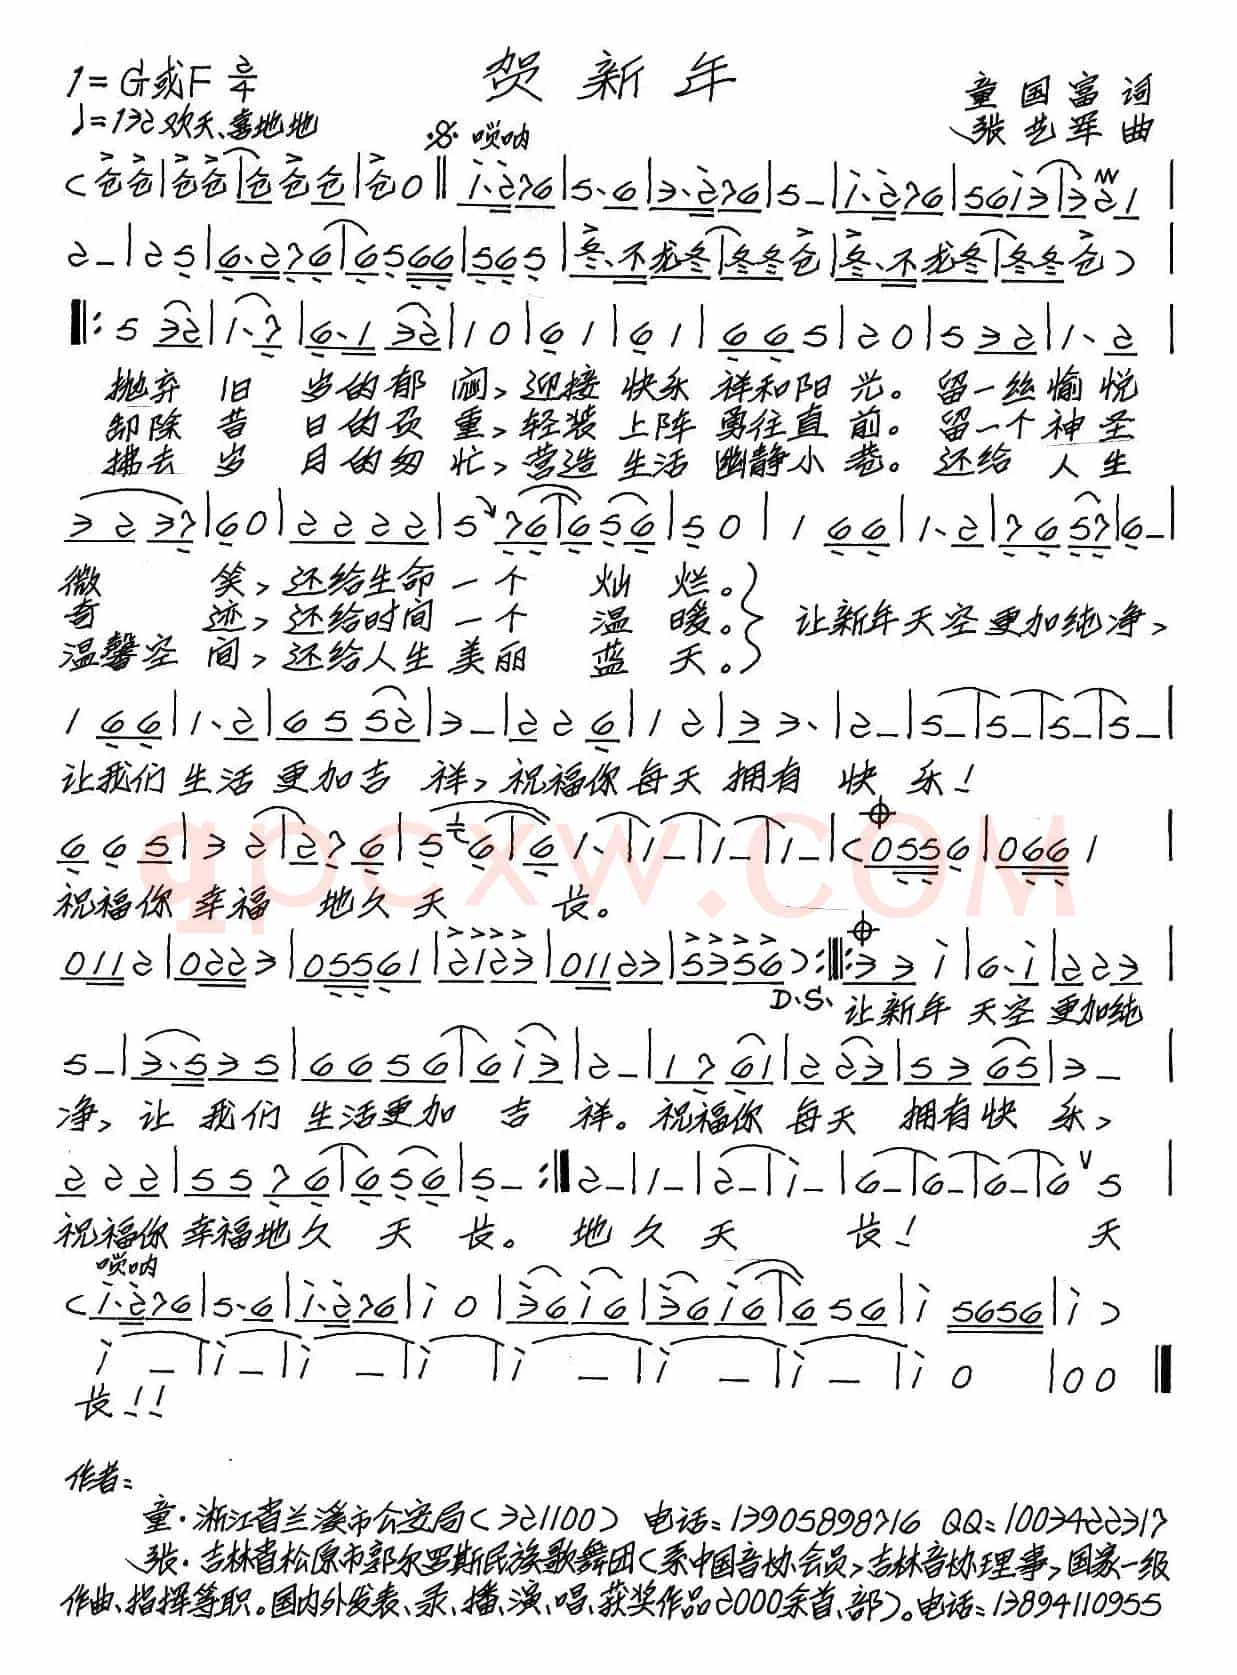 贺新年
1=G或F 2/4
童国富 词
♩=132 欢天、喜地地
张艺军 曲
唢呐
(仓仓|仓仓|仓仓仓|仓0‖i·276|5·6|3·276|5–|i·276|56i3|321|
2–|25|6·276|6566|565|冬·不龙冬|冬冬仓|冬·不龙冬|冬冬仓)|
‖:5 32|1·7|6·1 32|10|61|61|665|20|532|1·2|
抛弃旧岁的郁闷,迎接快乐祥和阳光。留一丝愉悦
卸除昔日的负重,轻装上阵勇往直前。留一个神圣
拂去岁月的匆忙,营造生活幽静小巷。还给人生
3237|60|2222|5 76|656|50|166|1·2|7657|6–|
微笑,还给生命一个灿烂。
奇迹,还给时间一个温暖。} 让新年天空更加纯净,
温馨空间,还给人生美丽蓝天。
166|1·2|6552|3–|226|12|33·|2–|5–|5–|5–|5–|
让我们生活更加吉祥,祝福你每天拥有快乐!
665|32|276|56|61·|1–|1–|1–|(0556|0661|
祝福你幸福地久天长。
0112|0223|05561|2123|01123|5356):‖:33i|6·i|2223|
D.S.
让新年天空更加纯
5–|3·535|6656|6i3|2–|1761|223|5365|3–|
净,让我们生活更加吉祥。祝福你每天拥有快乐,
222|5576|656|5–:‖2–|1–|2–|i–|6–|6–|6–|6 5|
祝福你幸福地久天长。地久天长!天
唢呐
(i·276|5·6|i·276|i0|36i6|36i6|656|i5656|i)
i–|i–|i–|i|i–|i–|i–|i0|00‖
长!!
作者:
童·浙江省兰溪市公安局(321100) 电话:13905898716 QQ:1003422317
张·吉林省松原市郭尔罗斯民族歌舞团(系中国音协会员,吉林音协理事,国家一级
作曲、指挥等职。国内外发表、录、播、演、唱、获奖作品2000余首、部)。电话:13894110955
qpcxw.COM